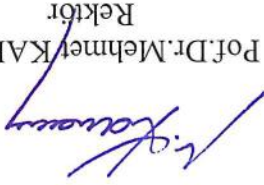 Pof.Dr.Mehmet KA
Rektör